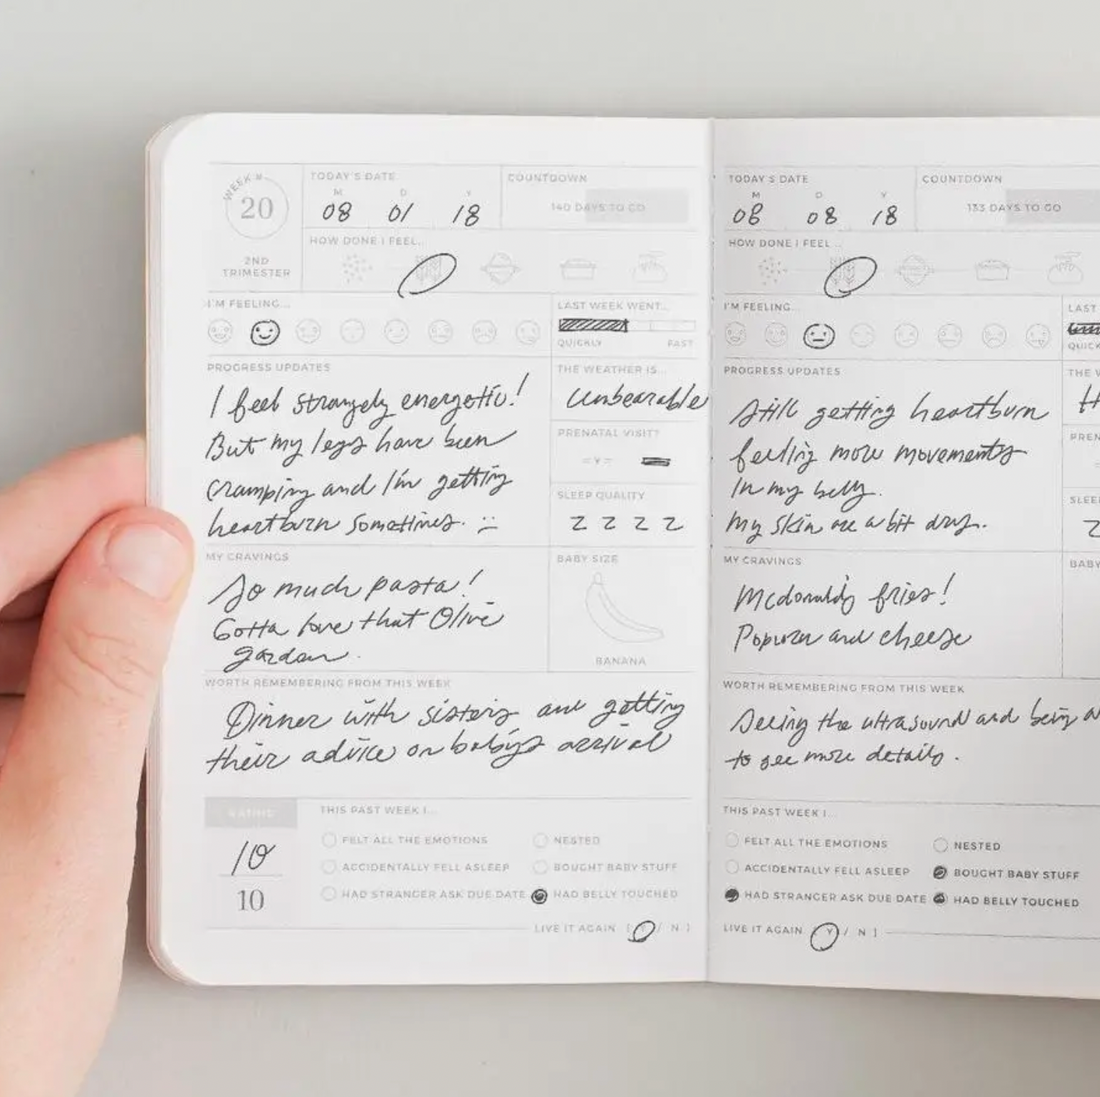 WEEK #
20
2ND
TRIMESTER
TODAY'S DATE
M D Y
08 01 18
COUNTDOWN
140 DAYS TO GO
HOW DONE I FEEL...
I'M FEELING...
LAST WEEK WENT...
QUICKLY FAST
PROGRESS UPDATES
I feel strangely energetic!
But my legs have been
cramping and I'm getting
heartburn sometimes. :(
THE WEATHER IS...
Unbearable
PRENATAL VISIT?
=Y=
SLEEP QUALITY
Z Z Z Z
MY CRAVINGS
So much pasta!
Gotta love that Olive
garden.
BABY SIZE
BANANA
WORTH REMEMBERING FROM THIS WEEK
Dinner with sisters and getting
their advice on baby's arrival
RATING
10
10
THIS PAST WEEK I...
FELT ALL THE EMOTIONS NESTED
ACCIDENTALLY FELL ASLEEP BOUGHT BABY STUFF
HAD STRANGER ASK DUE DATE HAD BELLY TOUCHED
LIVE IT AGAIN [ Y / N ]
TODAY'S DATE
M Y
08 08 18
COUNTDOWN
133 DAYS TO GO
HOW DONE I FEEL...
I'M FEELING...
LAST
QUICK
PROGRESS UPDATES
Still getting heartburn
feeling more movements
In my belly.
My skin are a bit dry.
THE W
H
PREN
SLEE
Z
MY CRAVINGS
Mcdonald's fries!
Popcorn and cheese
BABY
WORTH REMEMBERING FROM THIS WEEK
Seeing the ultrasound and being a
to see more details.
THIS PAST WEEK I...
FELT ALL THE EMOTIONS NESTED
ACCIDENTALLY FELL ASLEEP BOUGHT BABY STUFF
HAD STRANGER ASK DUE DATE HAD BELLY TOUCHED
LIVE IT AGAIN Y / N ]